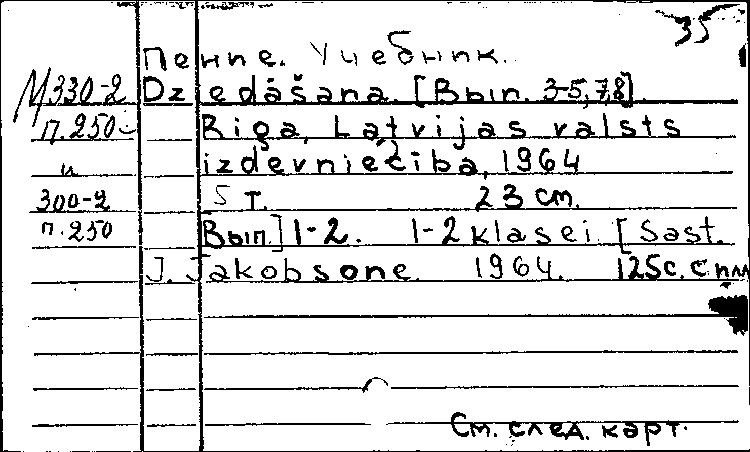 35
Пение. Учебник.
М330-2 Dziedāšana. [Вып. 3-5,7,8].
п.250- Rīga, Latvijas valsts
и izdevniecība, 1964
300-2 5 т. 23 см.
п.250 Вып.] 1-2. 1-2 klasei [Sast.
J. Jakobsone. 1964. 125с. с илл
См. след. карт.